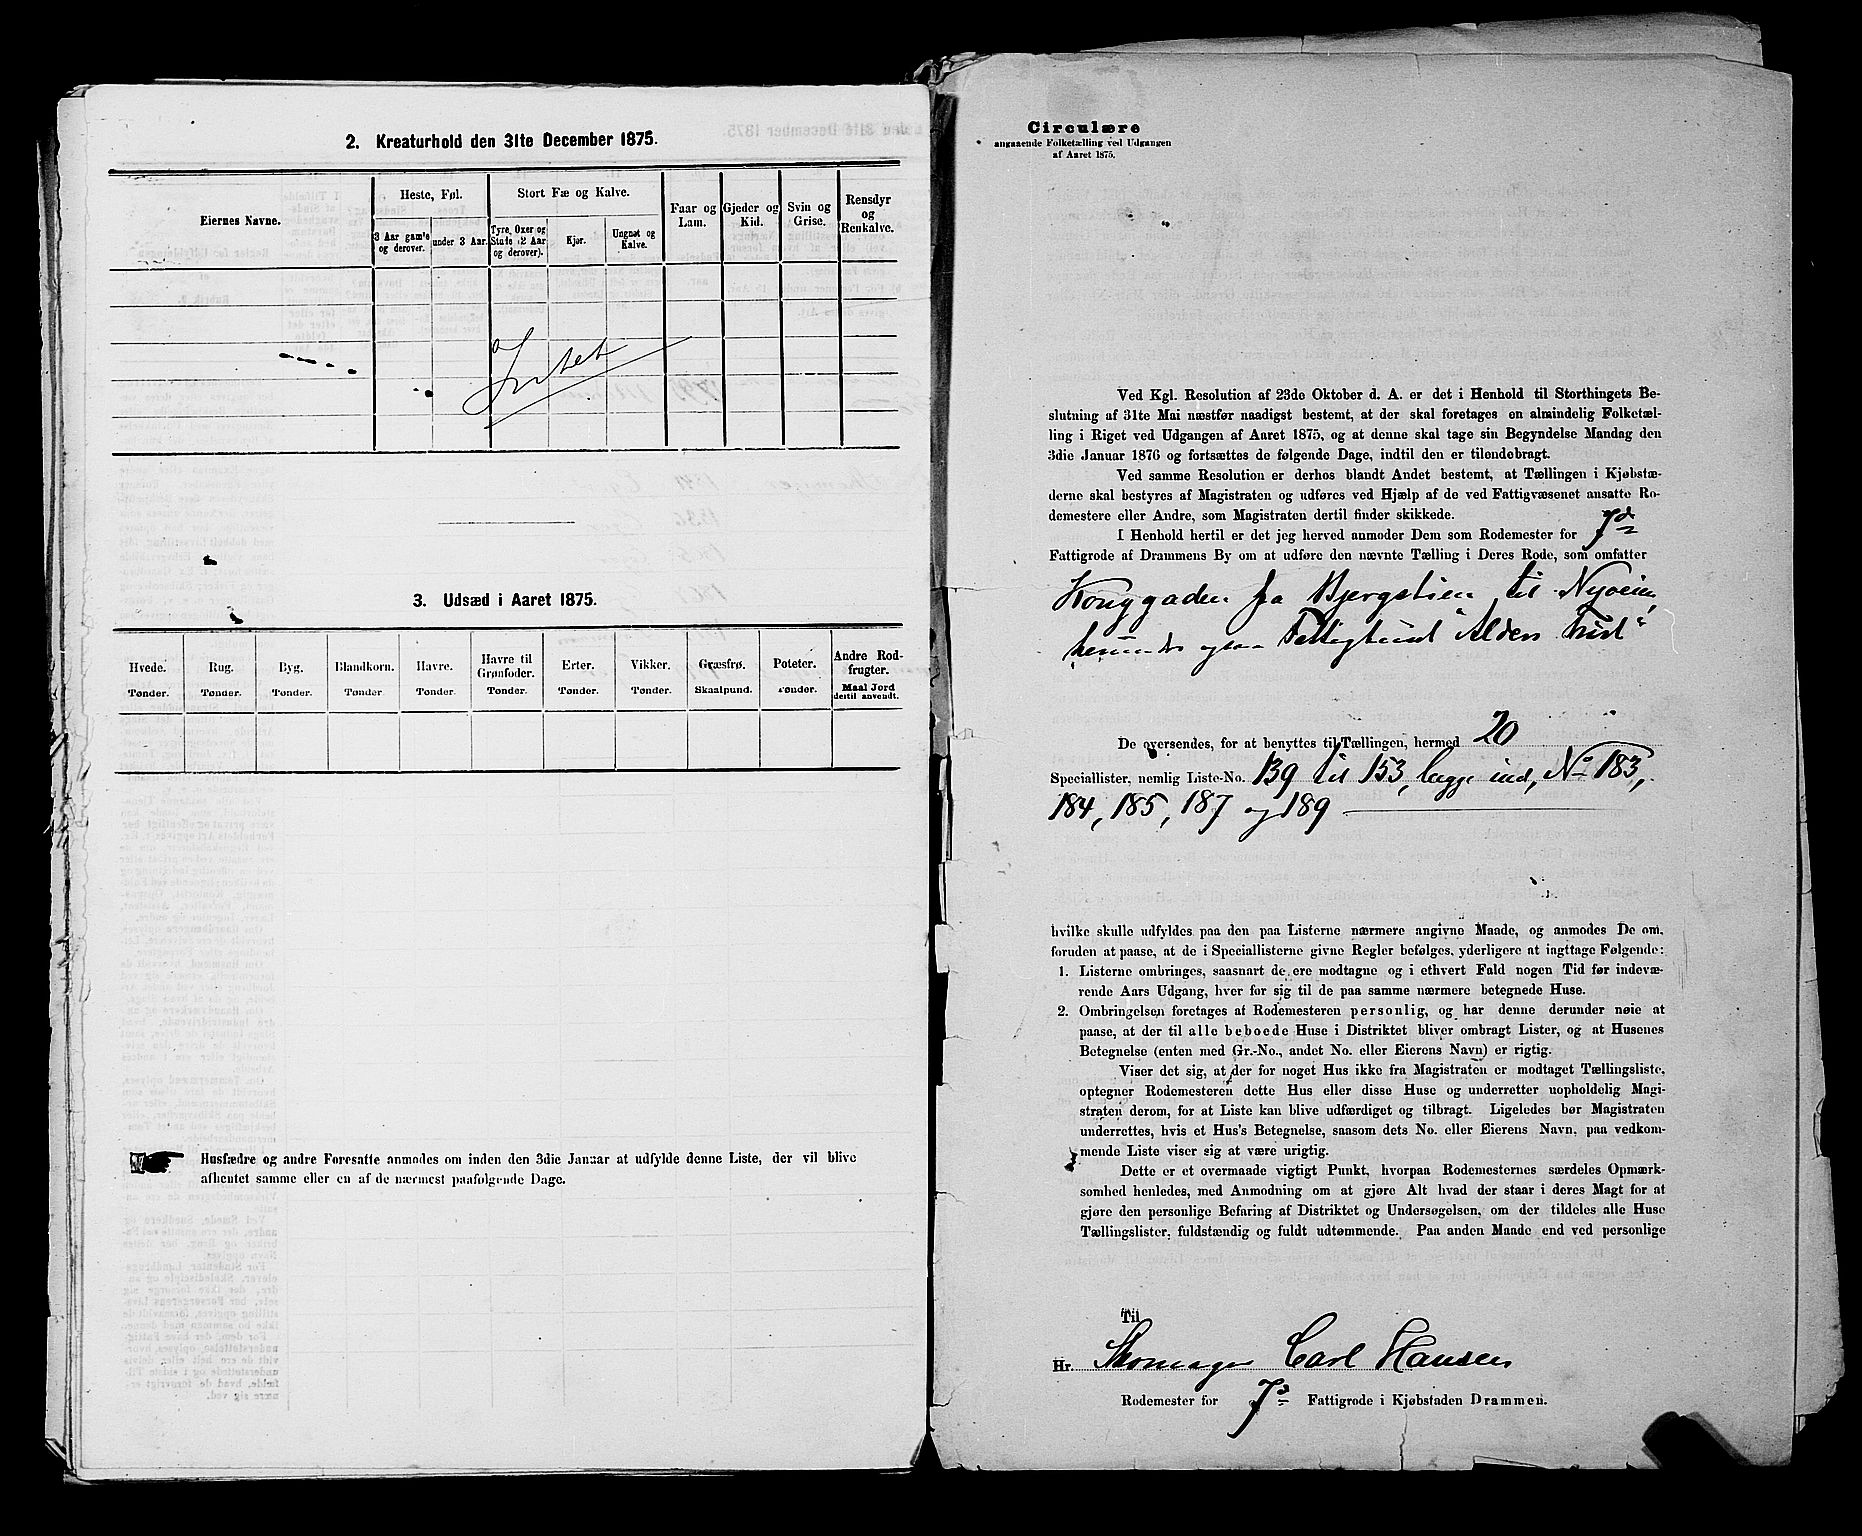 2. Kreaturhold den 31te December 1875.
Eiernes Navne.
Heste, Føl.
3 Aar gamle og derover.
under 3 Aar.
Stort Fæ og Kalve.
Tyre, Oxer og Stude (2 Aar og derover).
Kjør.
Ungnøt og Kalve.
Faar og Lam.
Gjeder og Kid.
Svin og Grise.
Rensdyr og Renkalve.
Intet
3. Udsæd i Aaret 1875.
Hvede. Rug. Byg. Blandkorn. Havre. Havre til Grønfoder. Erter. Vikker. Græsfrø. Poteter. Andre Rodfrugter.
Tønder. Tønder. Tønder. Tønder. Tønder. Tønder. Tønder. Tønder. Skaalpund. Tønder. Maal Jord dertil anvendt.
Husfædre og andre Foresatte anmodes om inden den 3die Januar at udfylde denne Liste, der vil blive
afhentet samme eller en af de nærmest paafølgende Dage.
Circulære
angaaende Folketælling ved Udgangen
af Aaret 1875.
Ved Kgl. Resolution af 23de Oktober d. A. er det i Henhold til Storthingets Be-
slutning af 31te Mai næstfør naadigst bestemt, at der skal foretages en almindelig Folketæl-
ling i Riget ved Udgangen af Aaret 1875, og at denne skal tage sin Begyndelse Mandag den
3die Januar 1876 og fortsættes de følgende Dage, indtil den er tilendebragt.
Ved samme Resolution er derhos blandt Andet bestemt, at Tællingen i Kjøbstæ-
derne skal bestyres af Magistraten og udføres ved Hjælp af de ved Fattigvæsenet ansatte Ro-
demestere eller Andre, som Magistraten dertil finder skikkede.
I Henhold hertil er det jeg herved anmoder Dem som Rodemester for 7de
Fattigrode af Drammens By om at udføre den nævnte Tælling i Deres Rode, som omfatter
Konggaden fra Bjergstien til Nyveien,
herunder ogsaa
De oversendes, for at benyttes til Tællingen, hermed 20
Speciallister, nemlig Liste-No. 139 til 153, begge incl, No 183,
184, 185, 187 og 189
hvilke skulle udfyldes paa den paa Listerne nærmere angivne Maade, og anmodes De om,
foruden at paase, at de i Speciallisterne givne Regler befølges, yderligere at iagttage Følgende:
1. Listerne ombringes, saasnart de ere modtagne og i ethvert Fald nogen Tid før indevæ-
rende Aars Udgang, hver for sig til de paa samme nærmere betegnede Huse.
2. Ombringelsen foretages af Rodemesteren personlig, og har denne derunder nøie at
paase, at der til alle beboede Huse i Distriktet bliver ombragt Lister, og at Husenes
Betegnelse (enten med Gr.-No., andet No. eller Eierens Navn) er rigtig.
Viser det sig, at der for noget Hus ikke fra Magistraten er modtaget Tællingsliste,
optegner Rodemesteren dette Hus eller disse Huse og underretter uopholdelig Magi-
straten derom, for at Liste kan blive udfærdiget og tilbragt. Ligeledes bør Magistraten
underrettes, hvis et Hus's Betegnelse, saasom dets No. eller Eierens Navn, paa vedkom-
mende Liste viser sig at være urigtig.
Dette er et overmaade vigtigt Punkt, hvorpaa Rodemesternes særdeles Opmærk-
somhed henledes, med Anmodning om at gjøre Alt hvad der staar i deres Magt for at
gjøre den personlige Befaring af Distriktet og Undersøgelsen, om der tildeles alle Huse
Tællingslister, fuldstændig og fuldt udtømmende. Paa anden Maade end ved personlige
Til
Hr. Skomager Carl Hansen
Rodemester for 7de Fattigrode i Kjøbstaden Drammen.